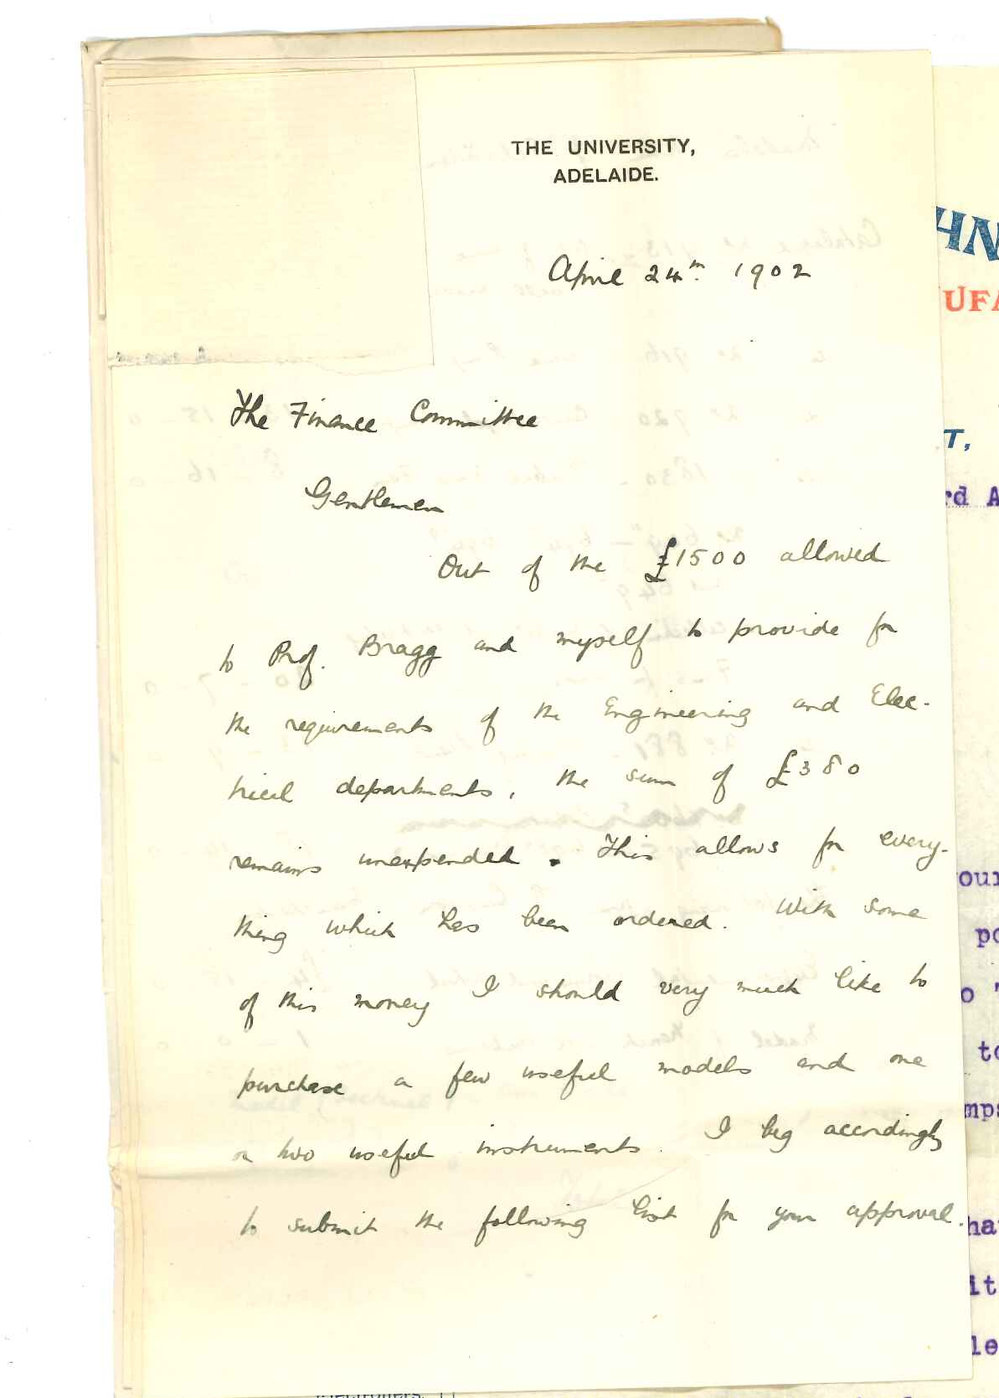 THE UNIVERSITY,
ADELAIDE.
April 24th. 1902
The Finance Committee
Gentlemen
Out of the £1500 allowed
to Prof. Bragg and myself to provide for
the requirements of the Engineering and Elec-
trical departments, the sum of £380
remains unexpended. This allows for every-
thing which has been ordered. With some
of this money I should very much like to
purchase a few useful models and one
or two useful instruments. I beg accordingly
to submit the following list for your approval.
HN
UFA
T,
rd A
our
po
o
to
mps
ha
it
le